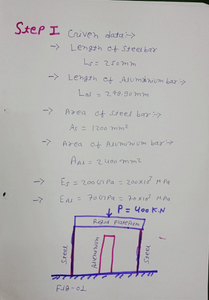 Step I Given data :-
→ Length of Steel bar
Ls = 250mm
→ Length of Aluminium bar :-
LAl = 249.90mm
→ Area of Steel bar :-
As = 1200 mm²
→ Area of Aluminium bar :-
AAl = 2400mm²
→ Es = 200 GPa = 200x10³ MPa
→ EAl = 70 GPa = 70x10³ MPa
P = 400KN
Rigid Platform
Steel
Aluminium
Steel